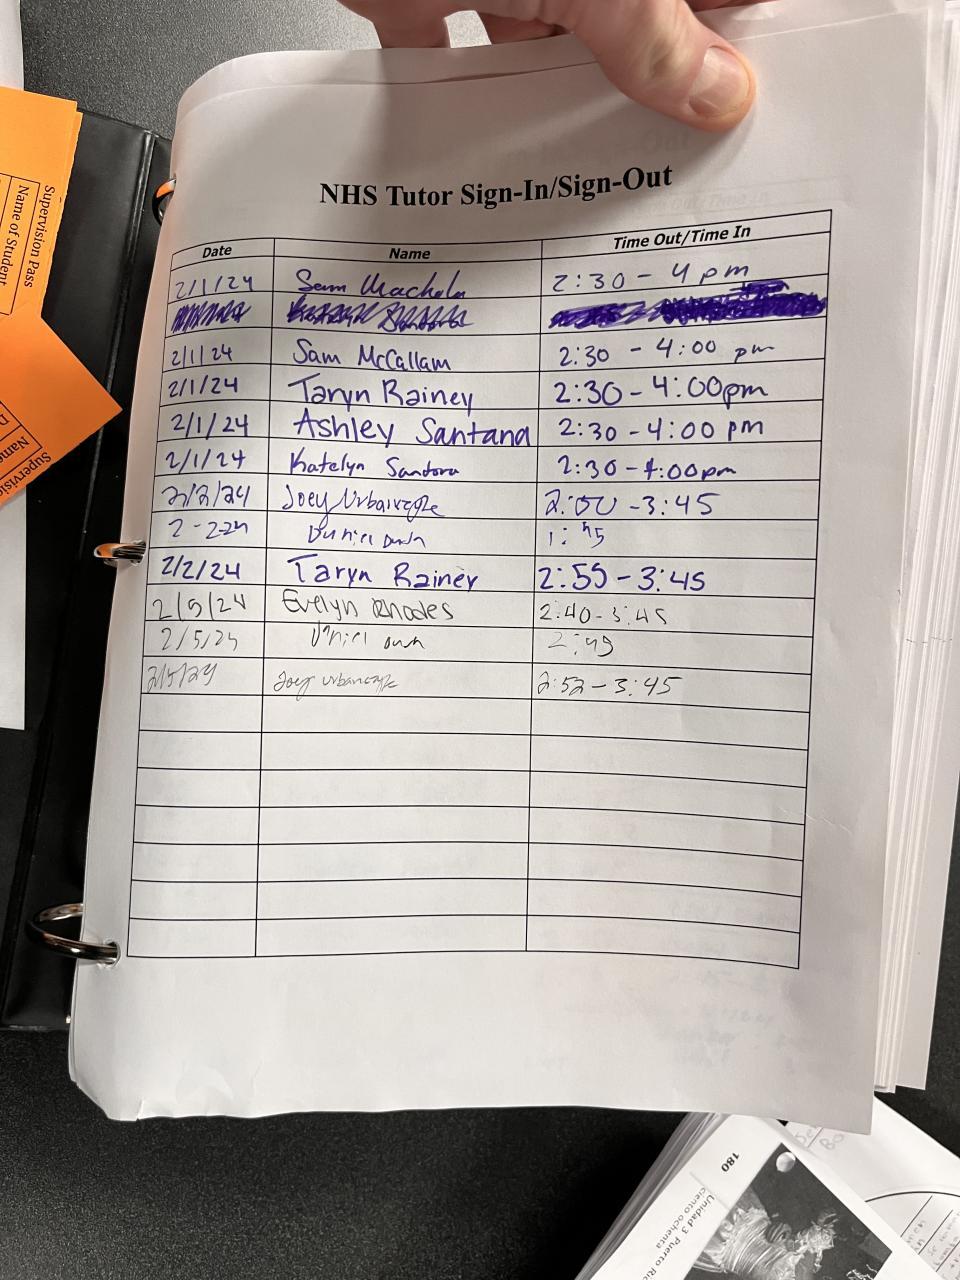 Supervision Pass
Name of Student
Supervisi
NHS Tutor Sign-In/Sign-Out
Date Name Time Out/Time In
2/1/24 Sam 2:30 - 4 pm
2/1/24 Sam McCallam 2:30 - 4:00 pm
2/1/24 Taryn Rainey 2:30 - 4:00pm
2/1/24 Ashley Santana 2:30 - 4:00 pm
2/1/24 Katelyn Santora 2:30 - 4:00pm
2/2/24 Joey 2:50 - 3:45
2-2-24 1:45
2/2/24 Taryn Rainey 2:55 - 3:45
2/5/24 Evelyn Rhodes 2:40 - 3:45
2/5/24 2:45
2/5/24 Joey 2:52 - 3:45
180
Unidad 3 Puerto Ric
ciento ochenta